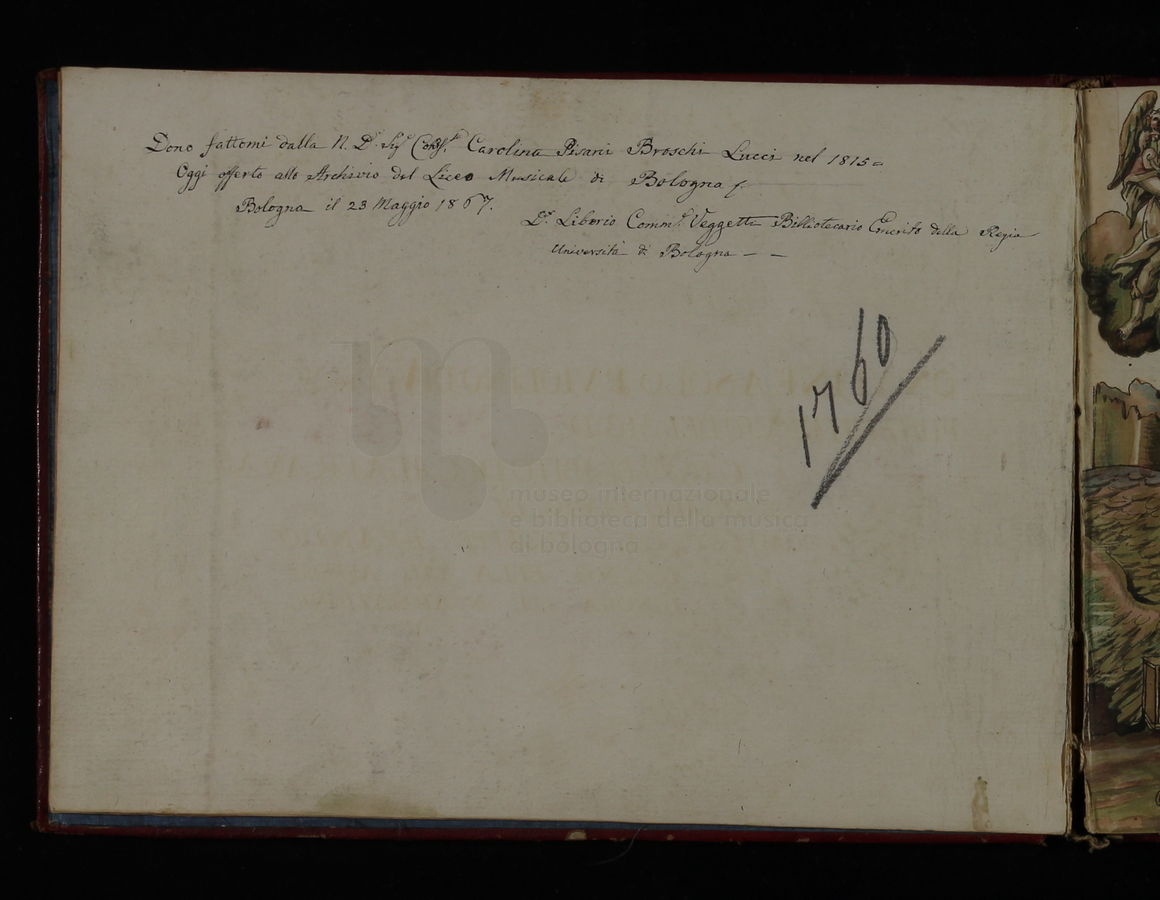 Dono fattomi dalla N. D. Sig.ª Contss.ª Carolina Pisani Broschi Lucci nel 1815=
Oggi offerto allo Archivio del Liceo Musicale di Bologna
Bologna il 23 Maggio 1867.
D.r Liborio Comm.r Veggetti Bibliotecario Emerito della Regia
Università di Bologna — —
1760
museo internazionale
e biblioteca della musica
di bologna